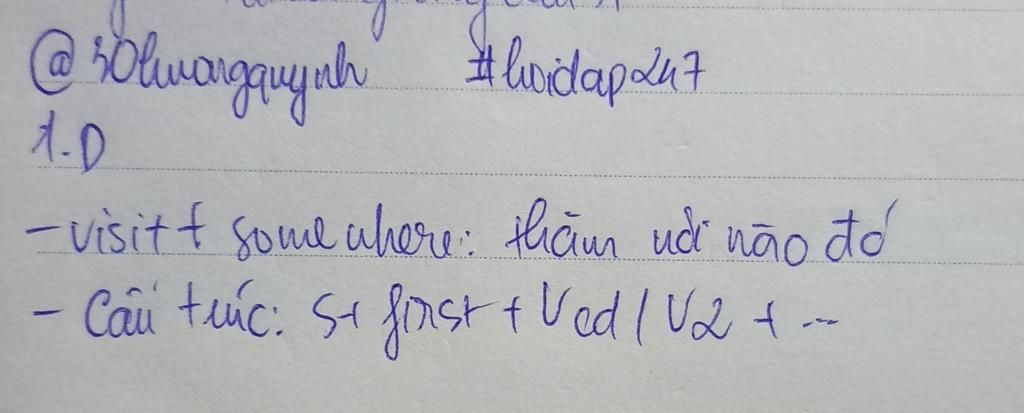 @30huongquynh #hoidap247
1.D
- visit + somewhere: thăm nơi nào đó
- Cấu trúc: S + first + Ved / V2 + ...